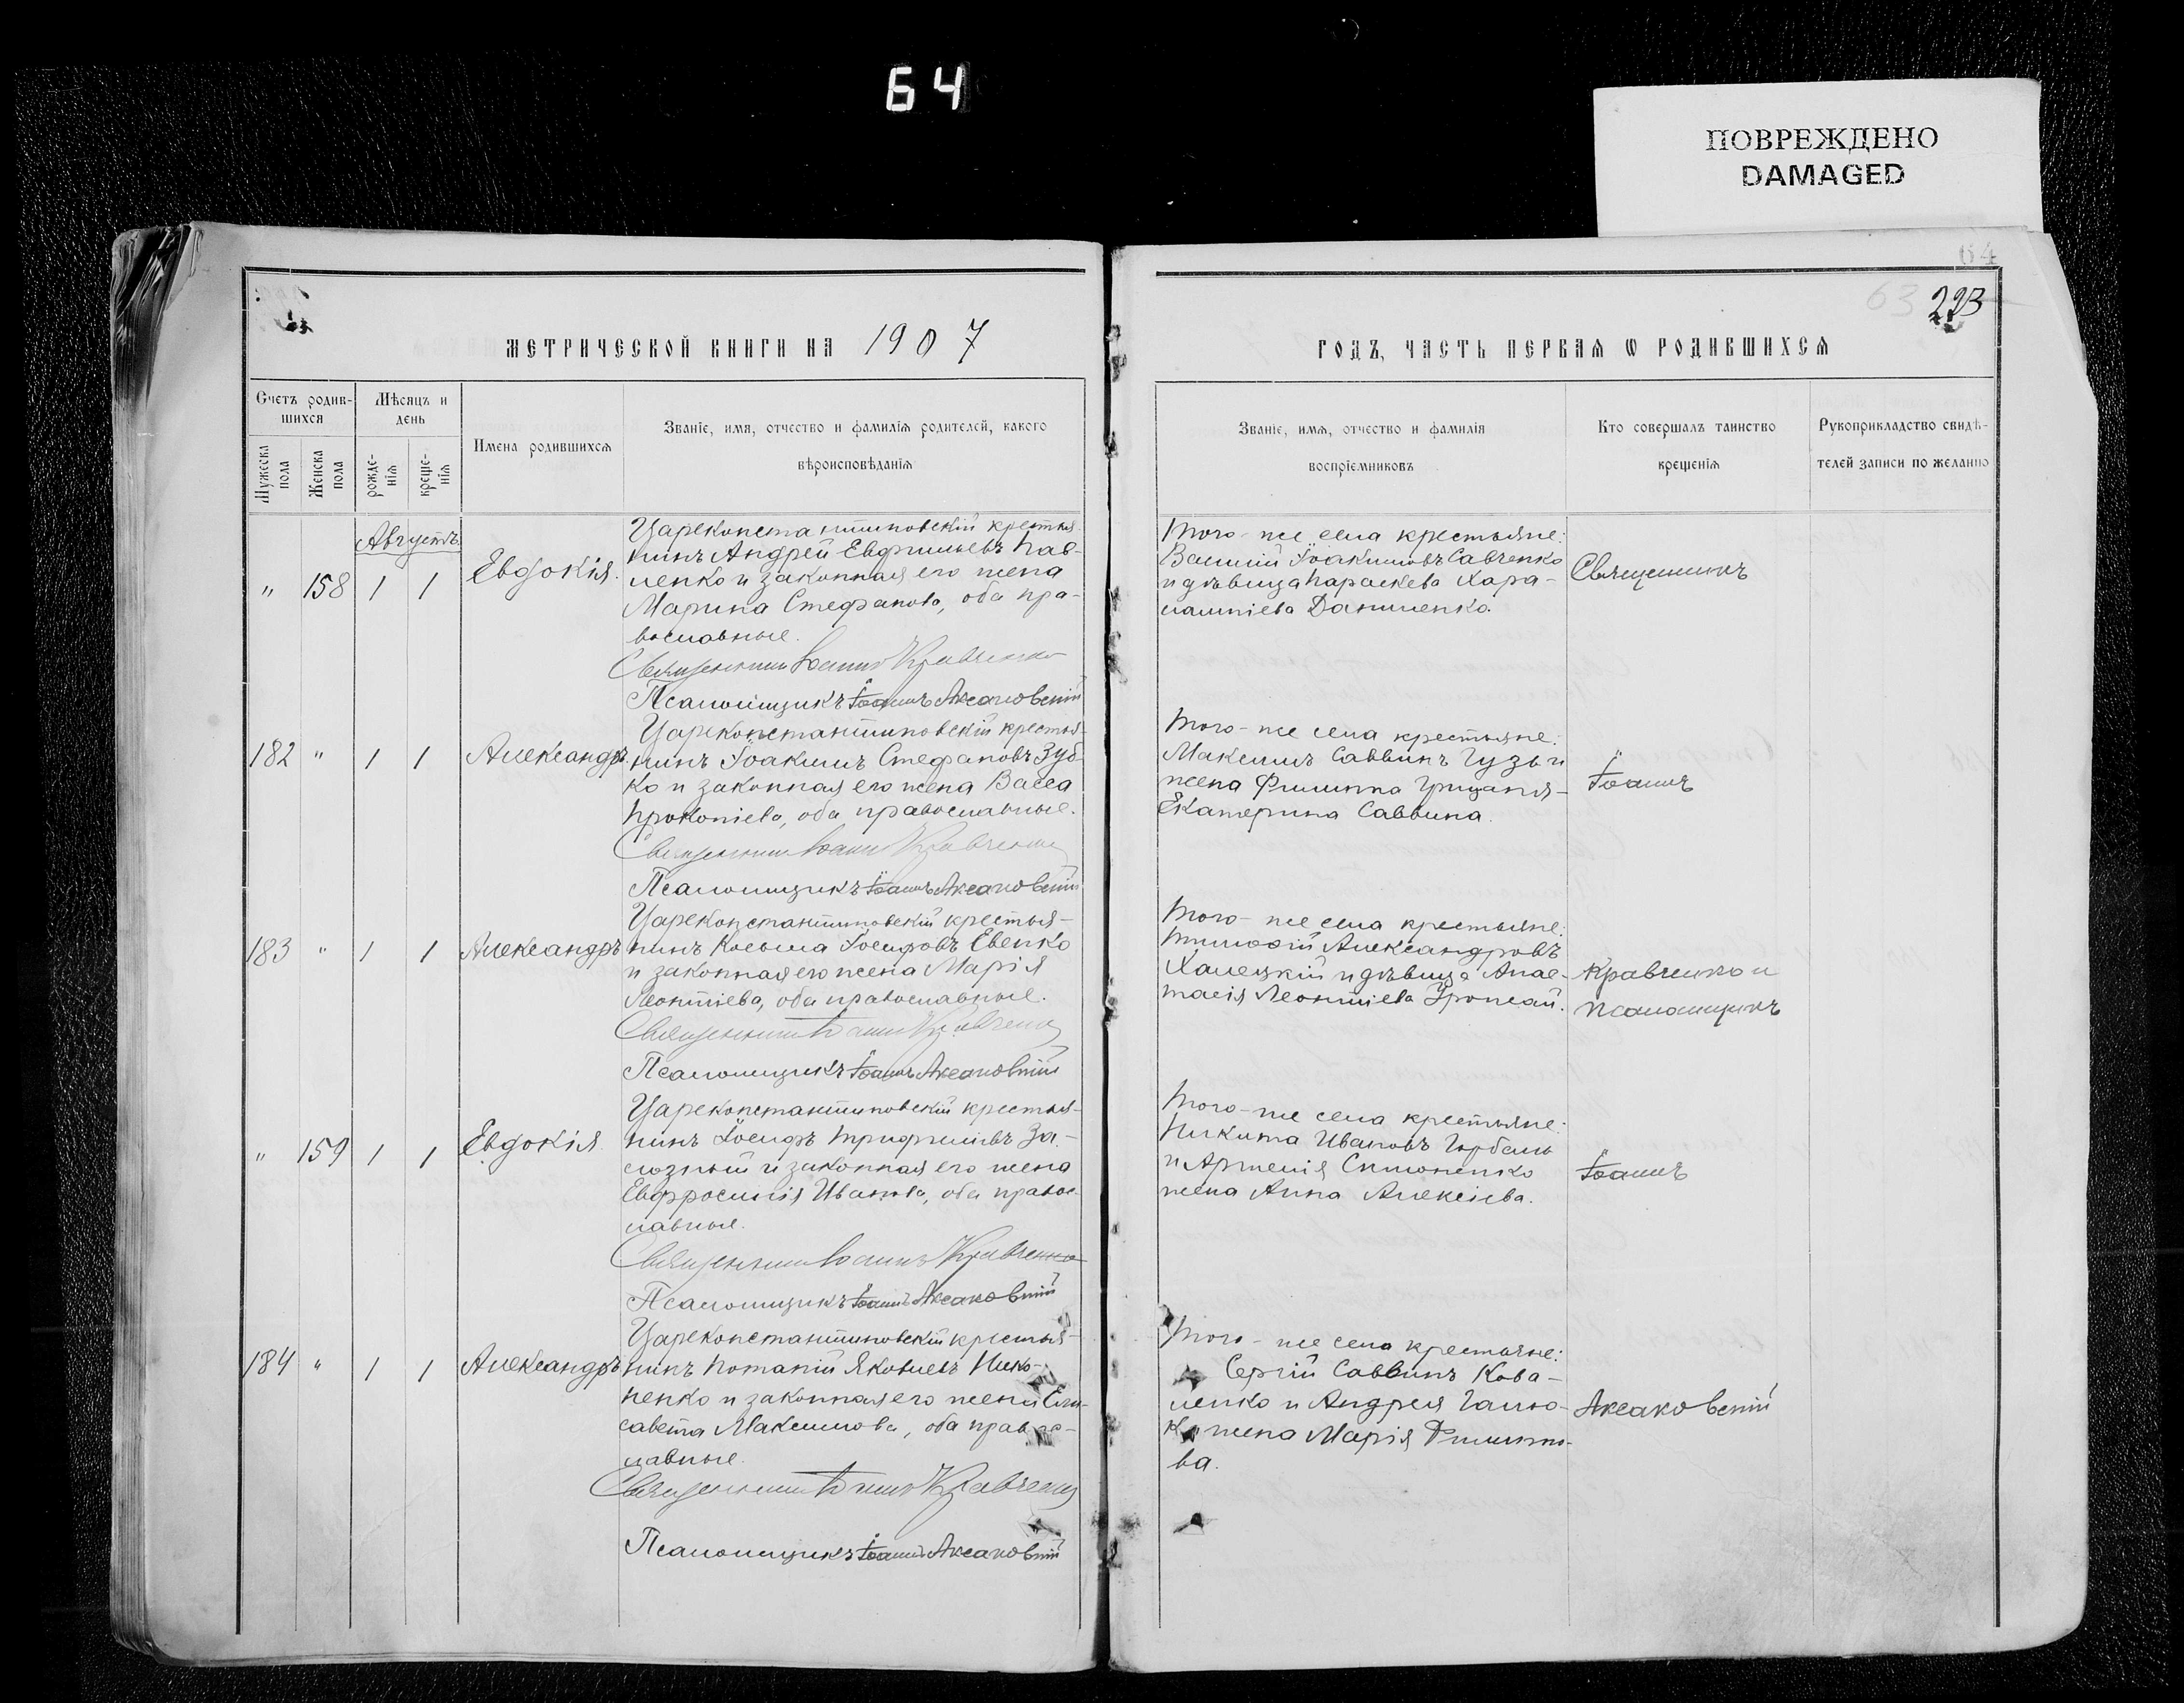 64
ПОВРЕЖДЕНО
DAMAGED
64
63
223
МЕТРИЧЕСКОЙ КНИГИ НА 1907
ГОДЪ, ЧАСТЬ ПЕРВАЯ Ѡ РОДИВШИХСЯ
Счетъ родив-
шихся
Мужеска пола
Женска пола
Мѣсяцъ и
день
рожде-
нія
креще-
нія
Имена родившихся
Званіе, имя, отчество и фамилія родителей, какого
вѣроисповѣданія
Званіе, имя, отчество и фамилія
воспріемниковъ
Кто совершалъ таинство
крещенія
Рукоприкладство свидѣ-
телей записи по желанію
Августъ
" 158 1 1 Евдокія.
Цареконстантиновскій крестья-
нинъ Андрей Евфимьевъ Пав-
ленко и законная его жена
Марина Стефанова, оба пра-
вославные.
Священникъ Іоаннъ Кравченко
Псаломщикъ Іоаннъ Аксаковскій
Того-же села крестьяне:
Василій Іоакимовъ Савченко
и дѣвица Параскева Хара-
лампіева Даниленко.
Священникъ
182 " 1 1 Александръ.
Цареконстантиновскій крестья-
нинъ Іоакимъ Стефановъ Зуб-
ко и законная его жена Васса
Прокопіева, оба православные.
Священникъ Іоаннъ Кравченко
Псаломщикъ Іоаннъ Аксаковскій
Того-же села крестьяне:
Максимъ Саввинъ Гузь и
жена Филиппа Грицая-
Екатерина Саввина.
Іоаннъ
183 " 1 1 Александръ
Цареконстантиновскій крестья-
нинъ Косьма Іосифовъ Евенко
и законная его жена Марія
Леонтіева, оба православные.
Священникъ Іоаннъ Кравченко
Псаломщикъ Іоаннъ Аксаковскій
Того-же села крестьяне:
Тимофей Александровъ
Халецкій и дѣвица Анас-
тасія Леонтіева
Кравченко и
псаломщикъ
" 159 1 1 Евдокія
Цареконстантиновскій крестья-
нинъ Іосифъ Трифиліевъ За-
слозный и законная его жена
Евфросинія Иванова, оба правос-
лавные.
Священникъ Іоаннъ Кравченко
Псаломщикъ Іоаннъ Аксаковскій
Того-же села крестьяне:
Никита Ивановъ Горбань
и Артемія Симоненко
жена Анна Алексіева.
Іоаннъ
184 " 1 1 Александръ
Цареконстантиновскій крестья-
нинъ Потапій Яковлевъ Нико-
ненко и законная его жена Ели-
савета Максимова, оба правос-
лавные.
Священникъ Іоаннъ Кравченко
Псаломщикъ Іоаннъ Аксаковскій
Того-же села крестьяне:
Сергій Саввинъ Кова-
ленко и Андрея Галю-
ка жена Марія Филиппо-
ва.
Аксаковскій